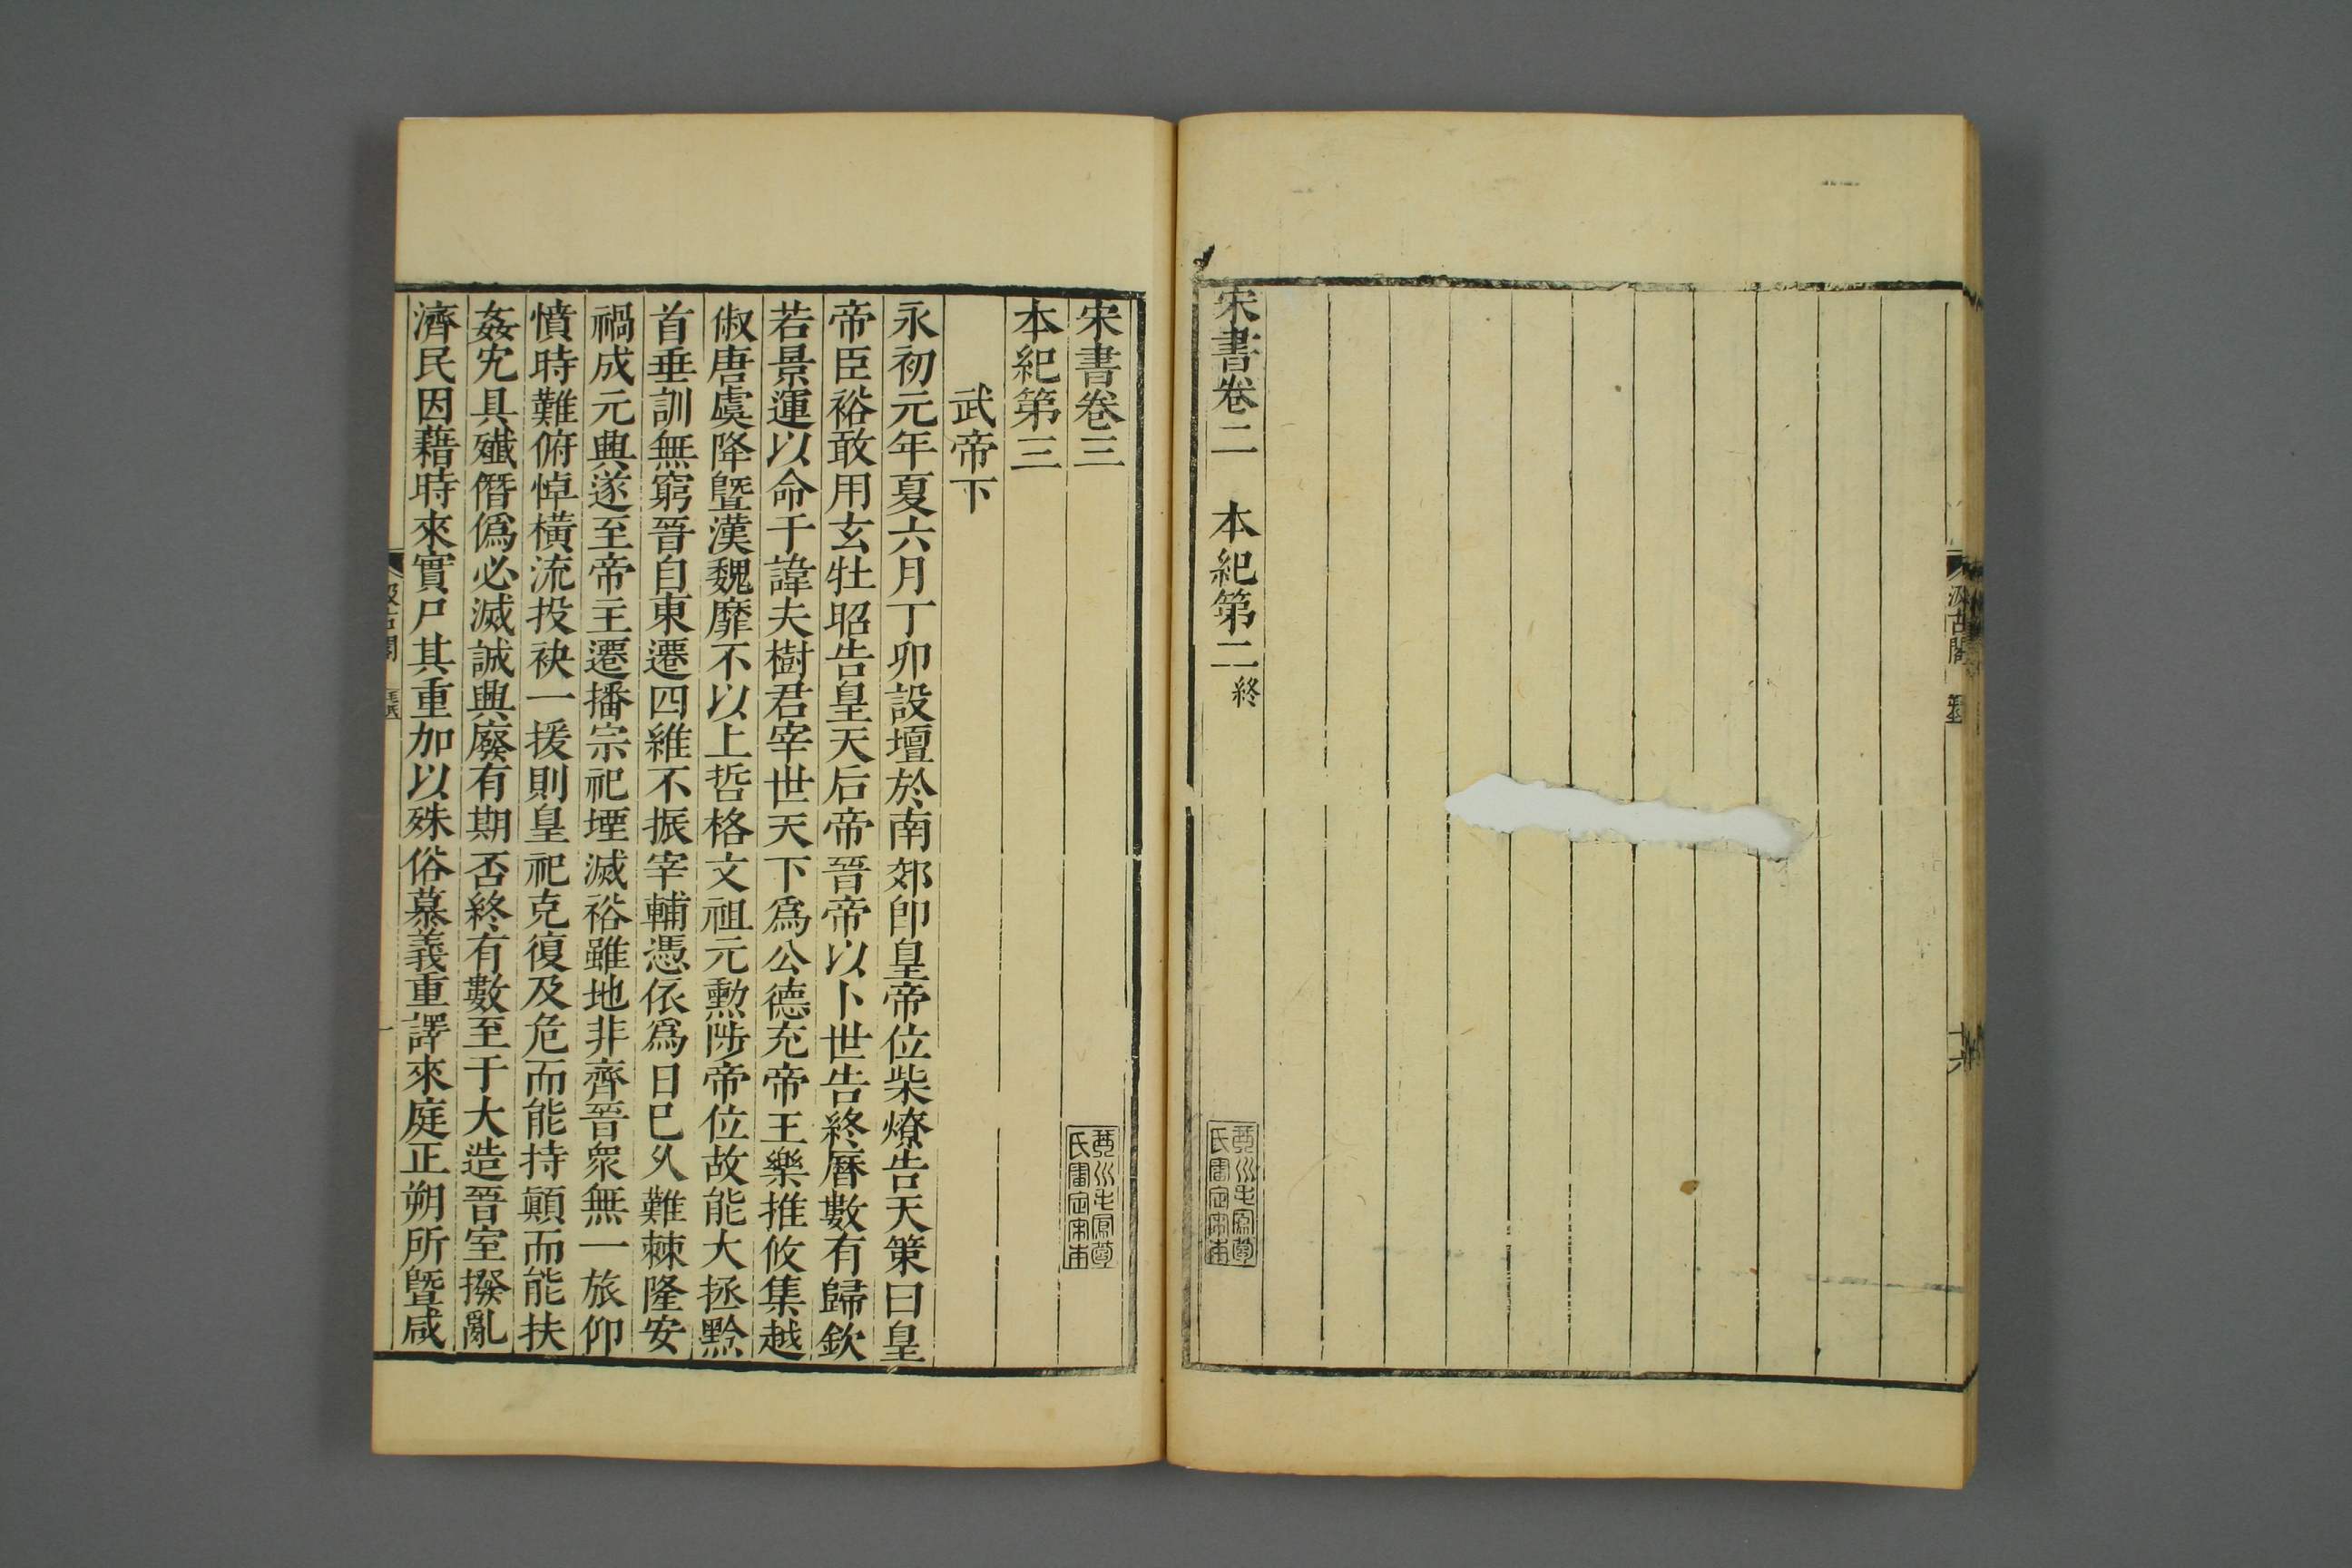 汲古閣
十六
宋書卷二　本紀第二終
宋書卷三
本紀第三
武帝下
永初元年夏六月丁卯設壇於南郊卽皇帝位柴燎告天策曰皇
帝臣裕敢用玄牡昭告皇天后帝晉帝以卜世告終曆數有歸欽
若景運以命于諱夫樹君宰世天下爲公德充帝王樂推攸集越
俶唐虞降曁漢魏靡不以上哲格文祖元勲陟帝位故能大拯黔
首垂訓無窮晉自東遷四維不振宰輔憑依爲日巳乆難棘隆安
禍成元興遂至帝主遷播宗祀堙滅裕雖地非齊晉衆無一旅仰
憤時難俯悼橫流投袂一援則皇祀克復及危而能持顚而能扶
姦宄具殲僭僞必滅誠興廢有期否終有數至于大造晉室撥亂
濟民因藉時來實尸其重加以殊俗慕義重譯來庭正朔所曁咸
汲古閣
一